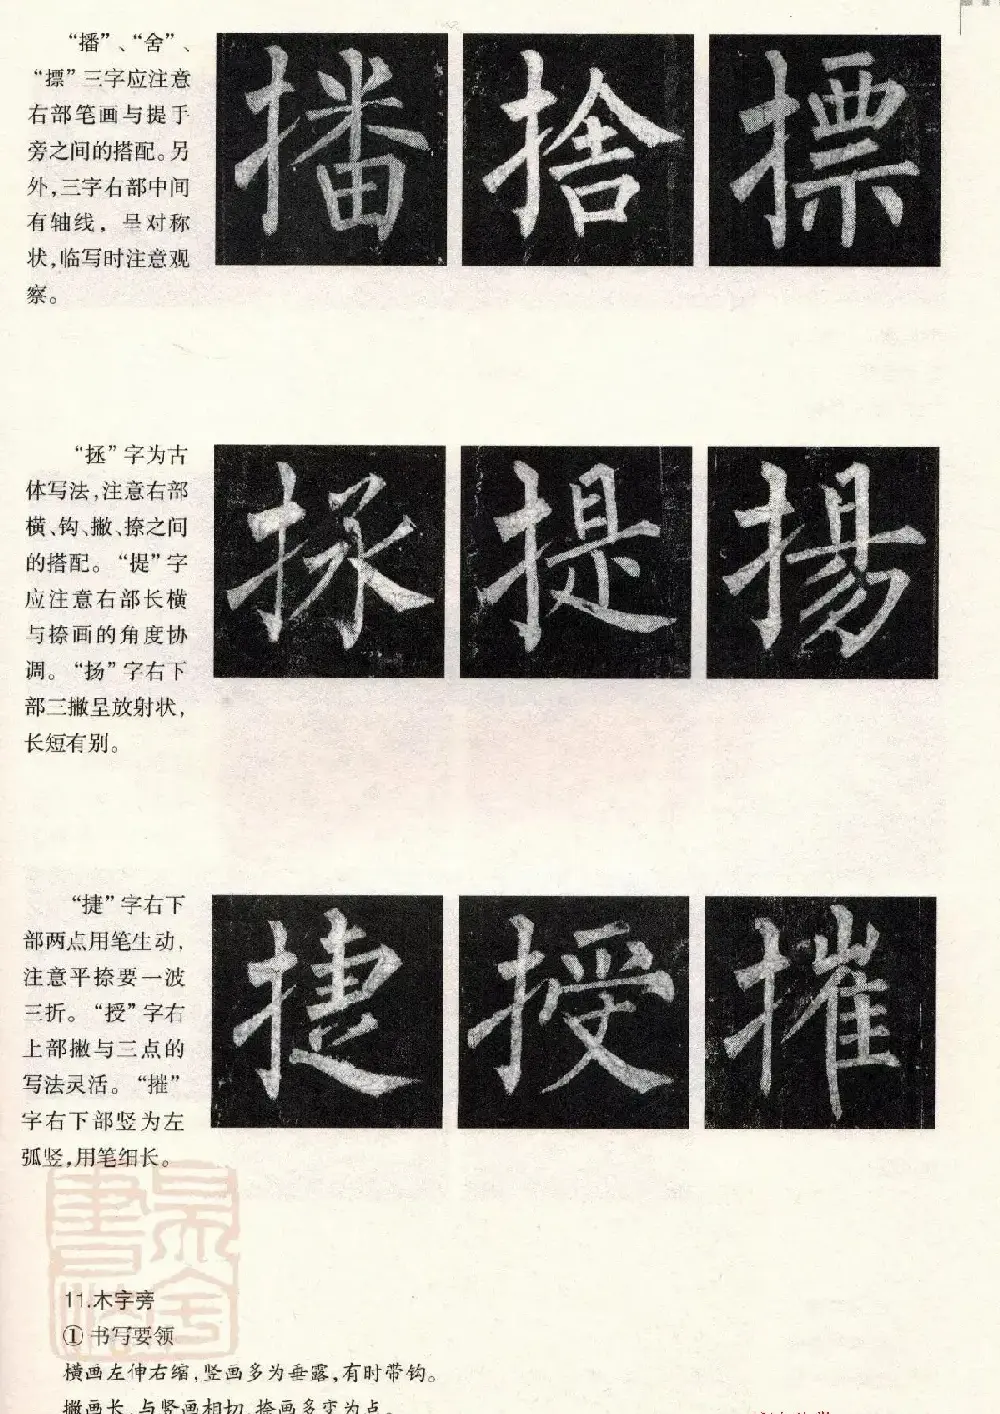 “播”、“舍”、
“摽”三字应注意
右部笔画与提手
旁之间的搭配。另
外,三字右部中间
有轴线，呈对称
状,临写时注意观
察。
播 捨 摽
“拯”字为古
体写法,注意右部
横、钩、撇、捺之间
的搭配。“提”字
应注意右部长横
与捺画的角度协
调。“扬”字右下
部三撇呈放射状,
长短有别。
拯 提 揚
“捷”字右下
部两点用笔生动,
注意平捺要一波
三折。“授”字右
上部撇与三点的
写法灵活。“摧”
字右下部竖为左
弧竖,用笔细长。
捷 授 摧
11.木字旁
①书写要领
横画左伸右缩,竖画多为垂露,有时带钩。
撇画长,与竖画相切,捺画多变为点。